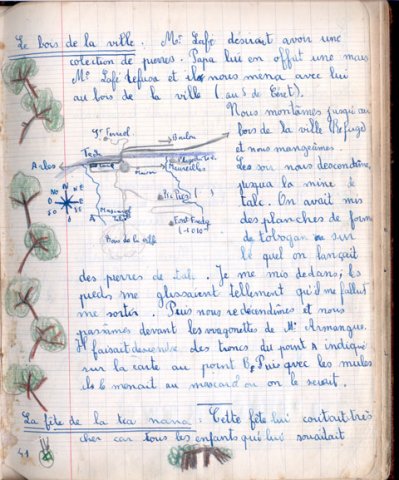 Le bois de la ville. Mr Lafé désirait avoir une
colection de pierres. Papa lui en offrit une mais
Mr Lafé refusa et il nous mena avec lui
au bois de la ville (au S de Céret).
Nous montâmes jusqu'au
bois de la ville (Refuge)
et nous mangeâmes.
St Ferreol
Boulou
Arles
Céret
N
NE
E
SE
S
SO
O
NO
A
Bois de la ville
Les soir nous descendîmes
jusqua la mine de
talc. On avait mis
des planches de forme
de tobogan sur
le quel on lançait
des pierres de talc. Je me mis dedans; les
pieds me glissaient tellement qu'il me fallut
me sortir. Puis nous redecendimes et nous
passâmes devant les wagonettes de Mr Armangue.
Il faisait descendre des troncs du point A indiqué
sur la carte au point B. Puis avec les mules
ils le menait au ou on le sciait.
La fête de la tea nana. Cette fête lui coutait très
cher car tous les enfants qui lui souaitait
41